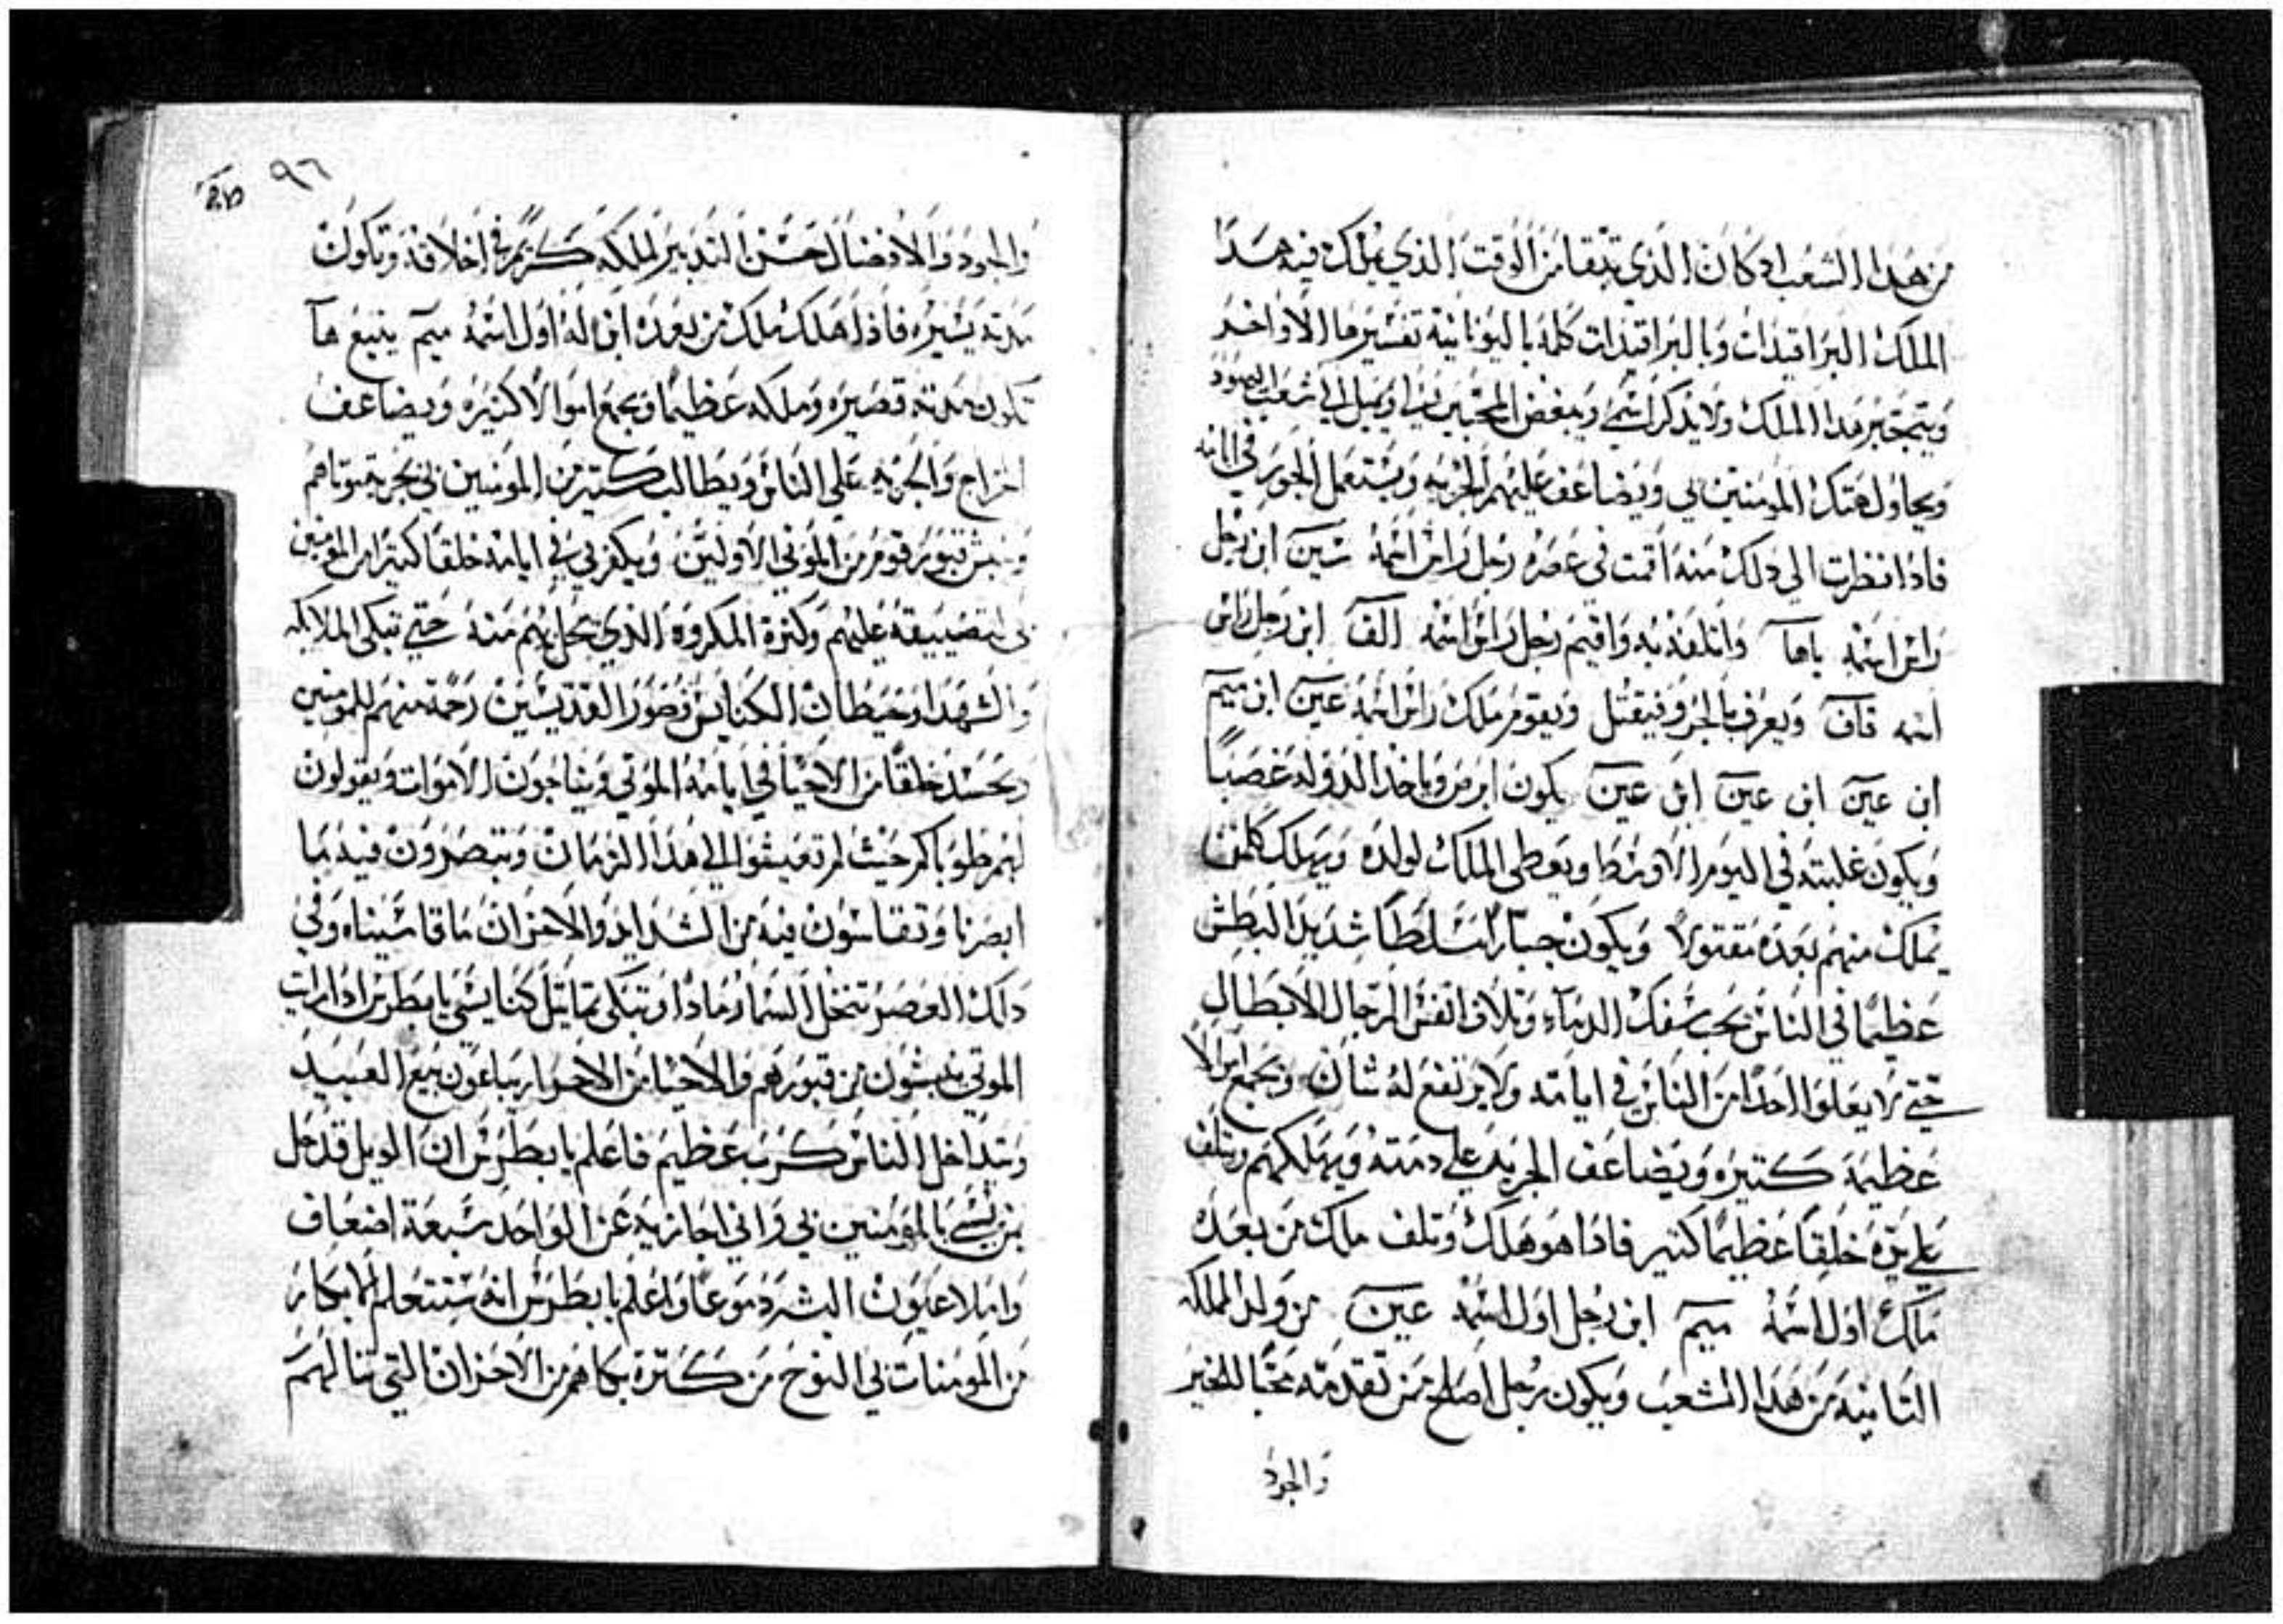 من هذا الشعب اد كان الذي تبقا من الوقت الذي يملك فيه هدا
الملك البراقيدات وبالبراقيدات كلمه باليونانية تفسيرها الاواخر
ويتجبر هدا الملك ولا يدكر اسمي ويبغض المحبين لي ويميل الي شعب اليهود
ويحاول هتك المومنين بي ويضاعف عليهم الجزيه ويستعمل الجور في ايامه
فادا نظرت الي دلك منه اقمت في عصره رجل راس اسمه سين ابن رجل
راس اسمه باها واتلفه به واقيم رجل راس اسمه الف ابن رجل راس
اسمه قاف ويعرف فيقتل ويقوم ملك راس اسمه عين ابن ميم
ابن عين ابن عين ابن عين يكون ابرص وياخد الدوله غصبا
ويكون غلبته في اليوم الاوسط ويعطي الملك لولده ويهلك كلمن
يملك منهم بعده مقتولا ويكون جبارا متسلطا شديد البطش
عظيما في الناس يحب سفك الدماء وتلاف انفس الرجال الابطال
حتي لا يعلوا احدا من الناس في ايامه ولا يرتفع له شان ويجمع اموالا
عظيمة كتيره ويضاعف الجزيه علي دمته ويهلكهم ويتلف
علي يده خلقا عظيما كتير فادا هو هلك وتلف ملك من بعده
ملك اول اسمه ميم ابن رجل اول اسمه عين من ولد المملكه
التانيه من هدا الشعب ويكون رجل اصلح ممن تقدمه محبا للخير
والجود
٩٦
والجود والافضال حسن التدبير لملكه كريم في اخلاقه وتكون
مدته يسيره فادا هلك ملك من بعده ابن له اول اسمه ميم يتبع ها
تكون مدته قصيره وملكه عظيما ويجمع اموالا كتيره ويضاعف
الخراج والجزيه علي الناس ويطالب كتير من المومنين بي بجزية موتاهم
وينبش قبور قوم من الموتي الاولين ويكفر بي في ايامه خلقا كتيرا من المومنين
بي لتضييقه عليهم وكترة المكروه الذي يحل بهم منه حتي تبكي الملايكه
والشهدا وحيطان الكنايس وصور القديسين رحمة منهم للمومنين
ويحسد خلقا من الاحيا في ايامه الموتي ويناجون الاموات ويقولون
لهم طوباكم حيث لم تعيشوا الي هذا الزمان وتبصرون فيه ما
ابصرنا وتقاسون فيه من الشدايد والاحزان ما قاسيناه وفي
دلك العصر تنخل السما رمادا وتبكي تماتيل كنايسي يا بطرس ادا رات
الموتي ينبشون من قبورهم والاحيا من الاحرار يباعون بيع العبيد
ويتداخل الناس كرب عظيم فاعلم يا بطرس ان الويل قد حل
بمن يسي بالمومنين بي واني اجازيه عن الواحد سبعة اضعاف
واملا عيون البشر دموعا واعلم يا بطرس انه ستتعلم البكار
من المومنات بي النوح من كترة بكاهم من الاحزان التي تنالهم